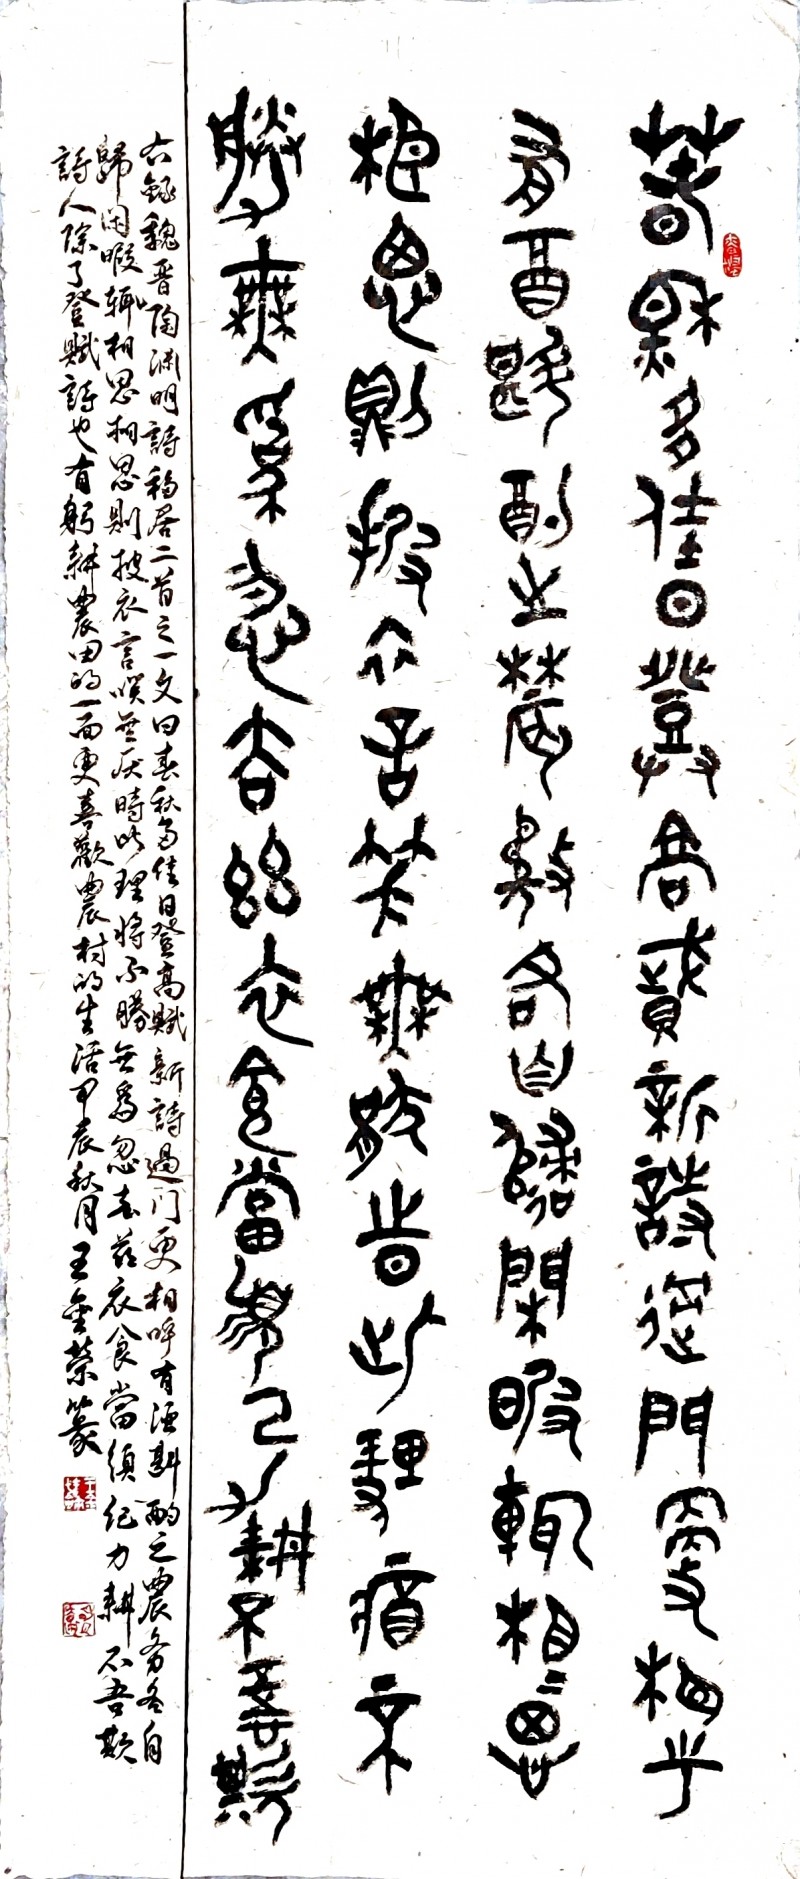 春秋多佳日登高賦新詩過門更相呼
有酒斟酌之農務各自歸閒暇輒相思
相思則披衣言笑無厭時此理將不
勝無為忽去茲衣食當須紀力耕不吾欺
右錄魏晋陶渊明詩移居二首之一文曰春秋多佳日登高賦新詩過门更相呼有酒斟酌之農务各自
歸闲暇輒相思相思則披衣言唉無厌時此理将不勝無為忽去兹衣食當須纪力耕不吾欺
詩人除了登賦詩也有躬耕農田的一面更喜歡農村的生活甲辰秋月王金荣篆